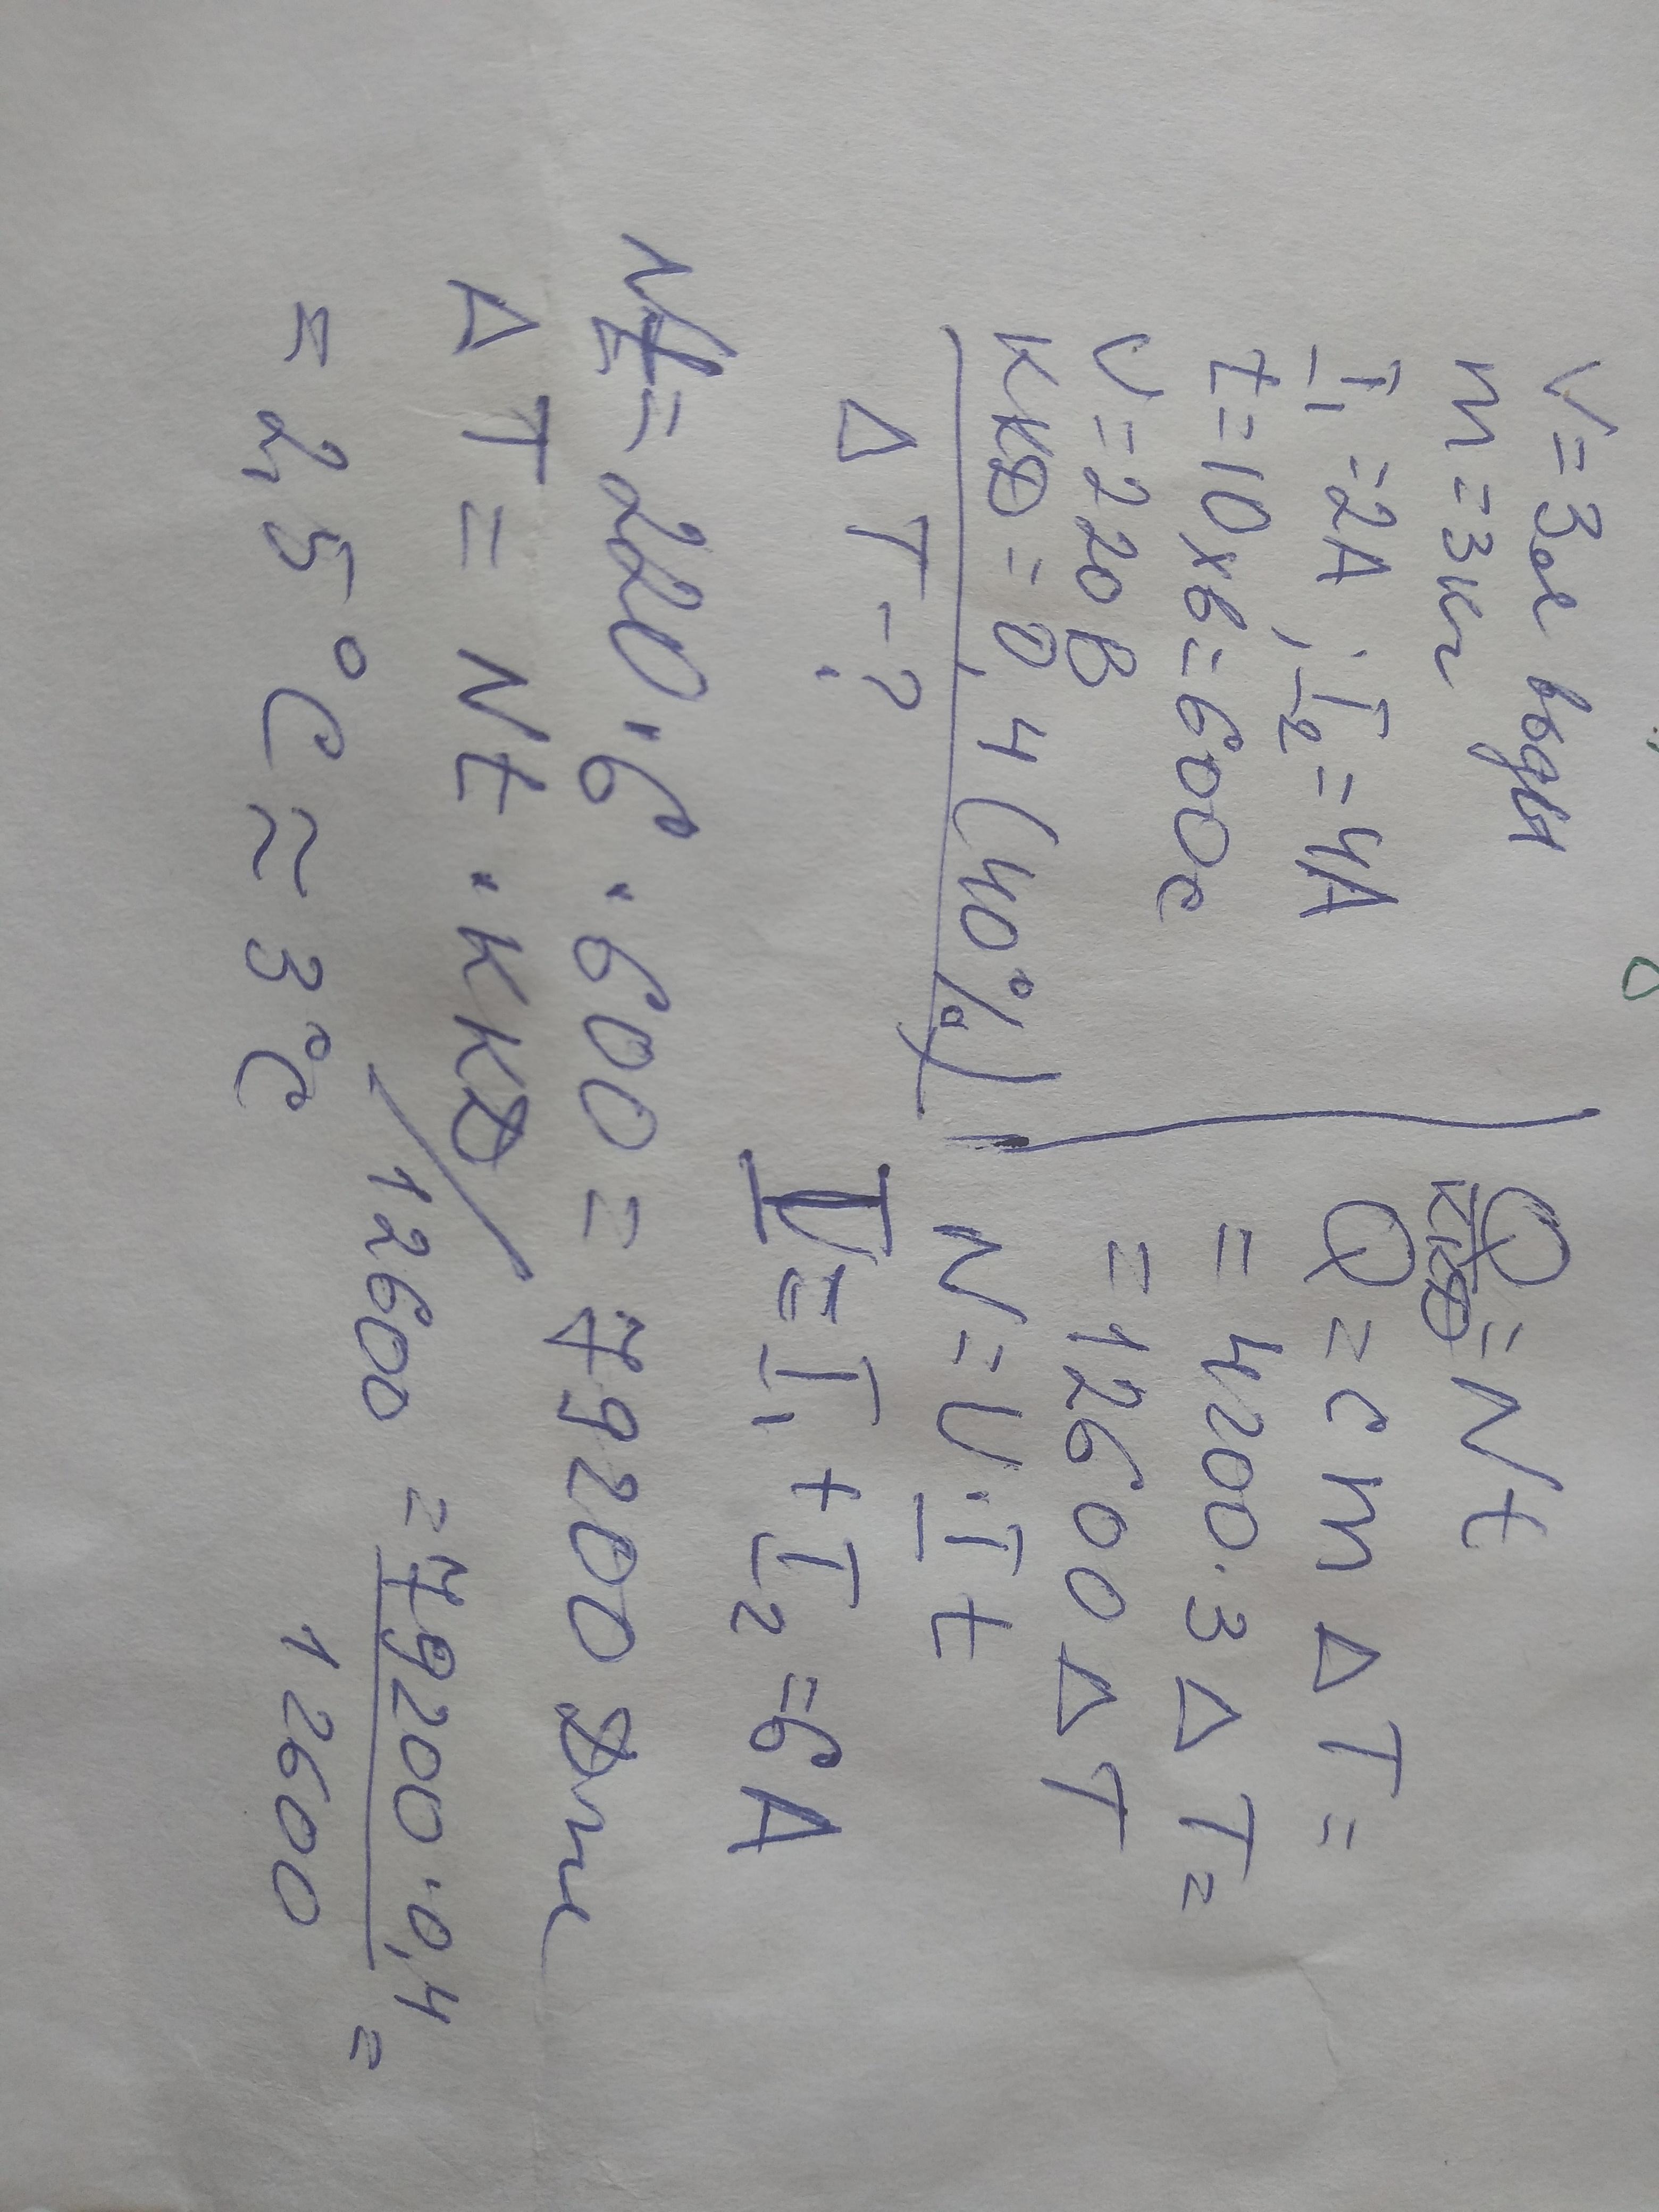 V=3л воды
m=3кг
I₁=2A; I₂=4A
t=10×6=600c
U=220В
ККД=0,4(40%)
ΔT-?
Q/ККД=Nt
Q=cmΔT=
=4200·3ΔT=
=12600ΔT
N=U·It
I=I₁+I₂=6A
Nt=220·6·600=79200Дж
ΔT=Nt·ККД/12600=79200·0,4/12600=
=2,5°C≈3°C